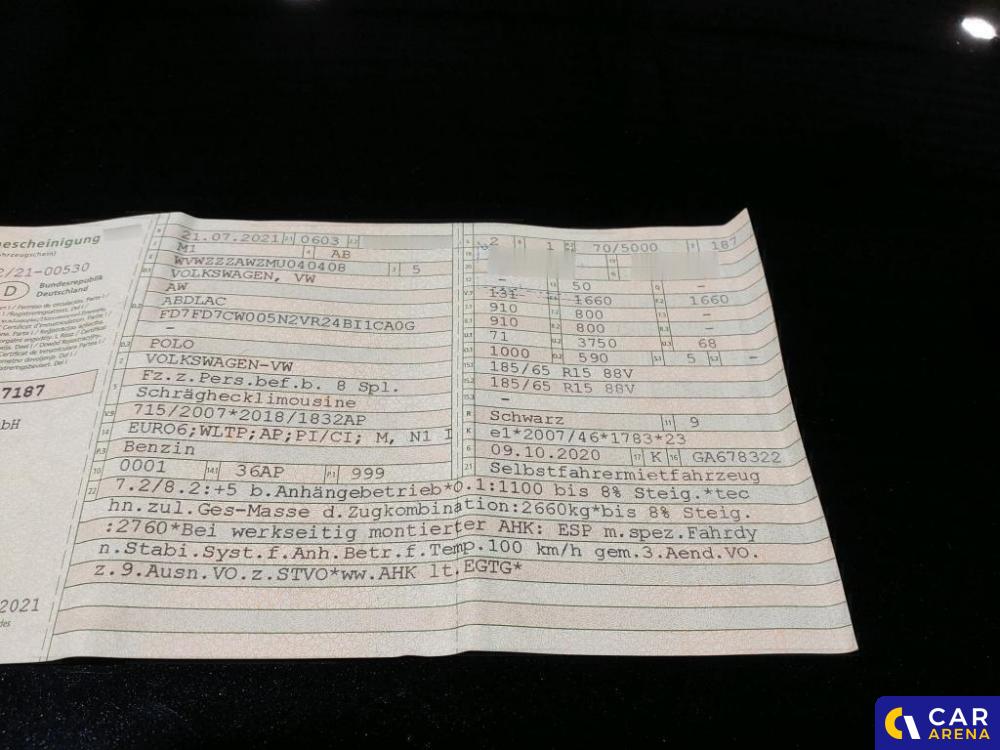 escheinigung
ahrzeugschein)
2/21-00530
D Bundesrepublik
Deutschland
7187
bH
2021
21.07.2021 2.1 0603 2.2
M1 4 AB
WVWZZZAWZMU040408 3 5
VOLKSWAGEN, VW
AW
ABDLAC
FD7FD7CW005N2VR24BI1CA0G
–
POLO
VOLKSWAGEN-VW
Fz.z.Pers.bef.b. 8 Spl.
Schräghecklimousine
715/2007*2018/1832AP
EURO6;WLTP;AP;PI/CI; M, N1 I
Benzin
10 0001 14.1 36AP P.1 999
2 9 1 70/5000 187
– 50 –
131 1660 1660
910 800 –
910 800 –
71 3750 68
1000 590 5 –
185/65 R15 88V
185/65 R15 88V
–
R Schwarz 11 9
K e1*2007/46*1783*23
6 09.10.2020 17 K 16 GA678322
21 Selbstfahrermietfahrzeug
22 7.2/8.2:+5 b.Anhängebetrieb*O.1:1100 bis 8% Steig.*tec
hn.zul.Ges-Masse d.Zugkombination:2660kg*bis 8% Steig.
:2760*Bei werkseitig montierter AHK: ESP m.spez.Fahrdy
n.Stabi.Syst.f.Anh.Betr.f.Temp.100 km/h gem.3.Aend.VO.
z.9.Ausn.VO.z.STVO*ww.AHK lt.EGTG*
CAR
ARENA